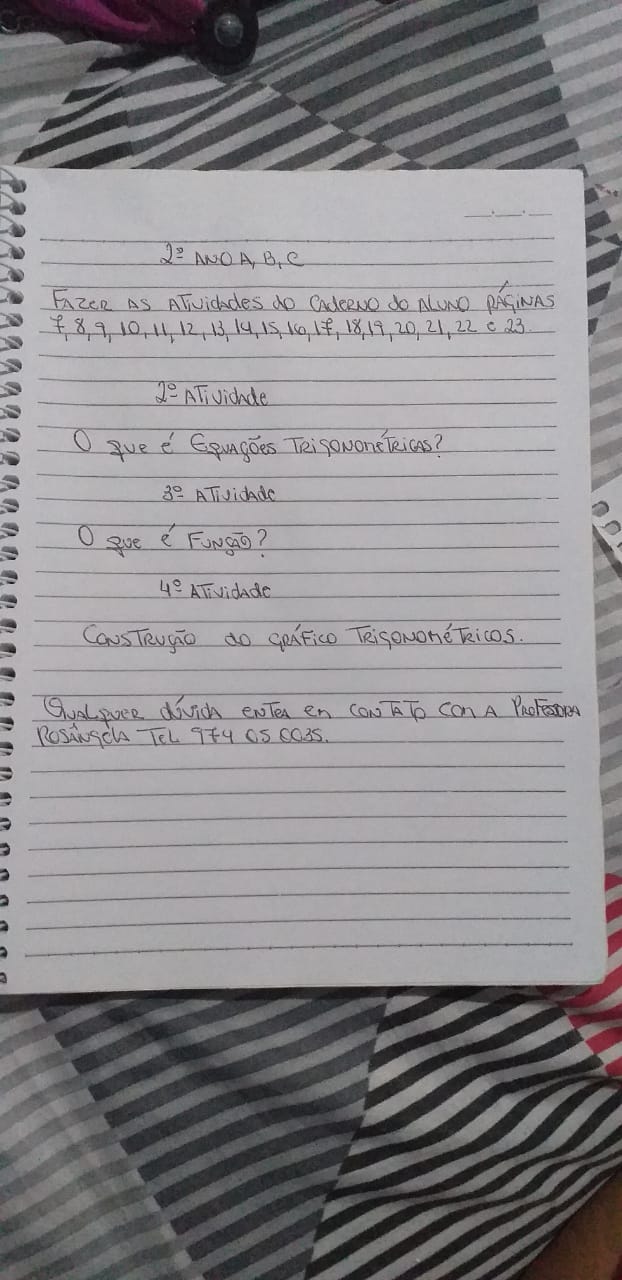 2º ANO A, B, C
FAZER AS ATIVIDADES DO CADERNO DO ALUNO PÁGINAS
7, 8, 9, 10, 11, 12, 13, 14, 15, 16, 17, 18, 19, 20, 21, 22 e 23.
2º ATIVIDADE
O QUE É EQUAÇÕES TRIGONOMÉTRICAS?
3º ATIVIDADE
O QUE É FUNÇÃO?
4º ATIVIDADE
CONSTRUÇÃO DO GRÁFICO TRIGONOMÉTRICOS.
QUALQUER DÚVIDA ENTRA EM CONTATO COM A PROFESSORA
ROSÂNGELA TEL 974 05 0035.